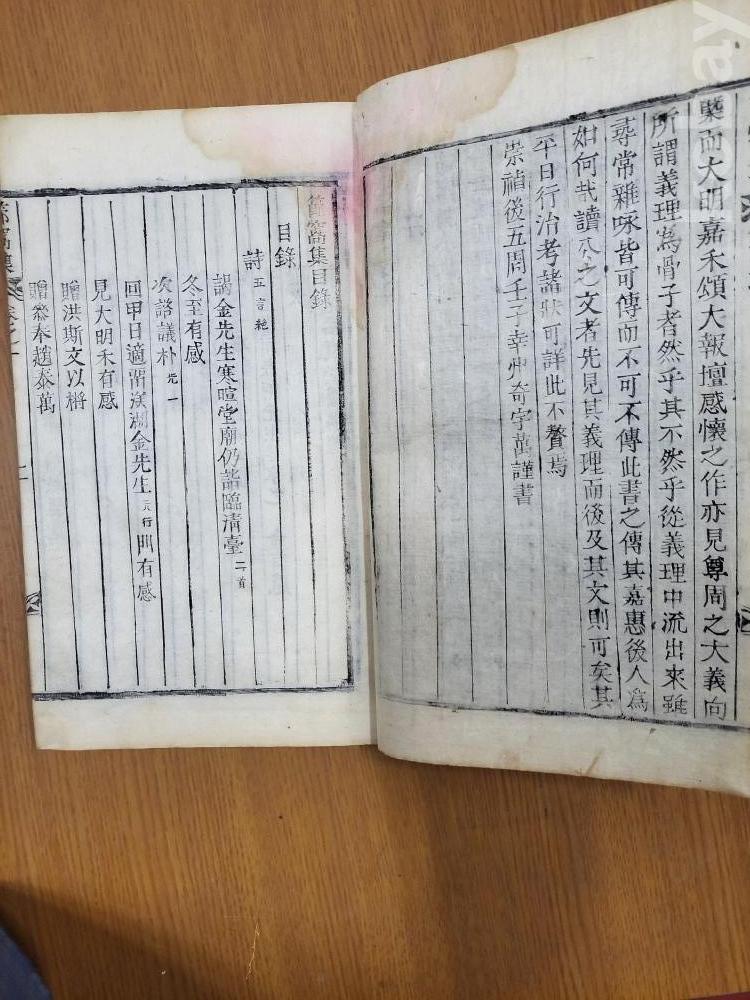 槩而大明嘉禾頌大報壇感懷之作亦見尊周之大義向
所謂義理爲骨子者然乎其不然乎從義理中流出來雖
尋常雜咏皆可傳而不可不傳此書之傳其嘉惠後人爲
如何哉讀公之文者先見其義理而後及其文則可矣其
平日行治考諸狀可詳此不贅焉
崇禎後五周壬子幸州奇宇萬謹書
窩集目錄
目錄
詩 五言絕
謁金先生寒暄堂廟仍詣臨淸臺 二首
冬至有感
次諮議朴 光一
回甲日適留渼湖金先生 元行 門有感
見大明禾有感
贈洪斯文以榰
贈叅奉趙泰萬
窩集
卷之一
ay